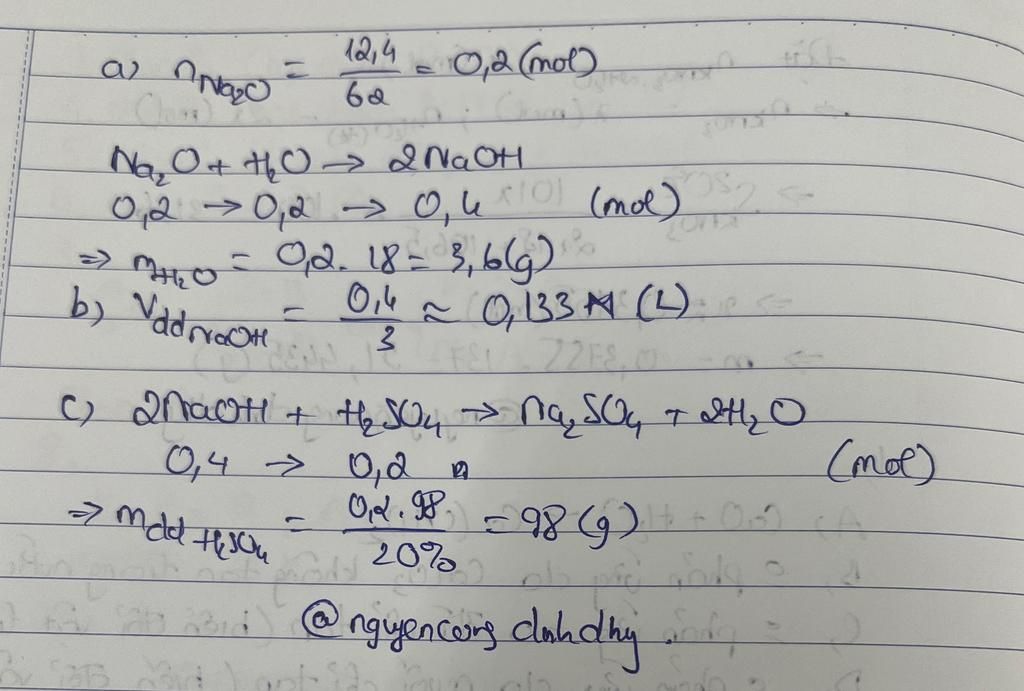 a) nNa2O = 12,4/62 = 0,2 (mol)
Na2O + H2O → 2NaOH
0,2 → 0,2 → 0,4 (mol)
⇒ mH2O = 0,2 . 18 = 3,6(g)
b) Vdd NaOH = 0,4/3 ≈ 0,133 (L)
c) 2NaOH + H2SO4 → Na2SO4 + 2H2O
0,4 → 0,2 (mol)
⇒ mdd H2SO4 = 0,2.98/20% = 98 (g)
@nguyencong